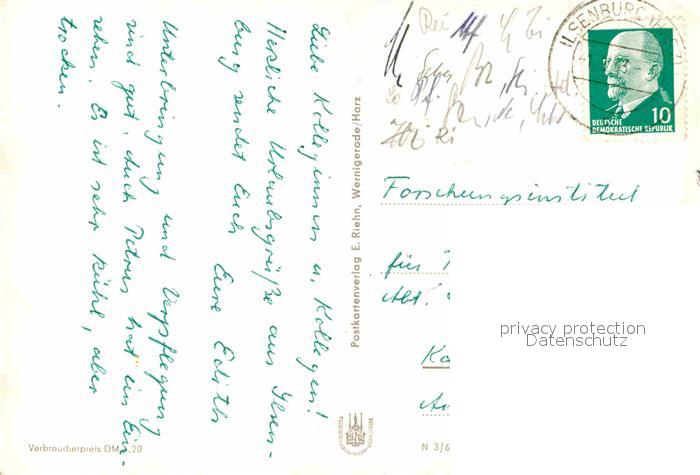 Liebe Kolleginnen u. Kollegen!
Herzliche Urlaubsgrüße aus Ilsen-
burg sendet Euch Eure Edith
Unterbringung und Verpflegung
sind gut. Auch Petrus hat ein Ein-
sehen. Es ist sehr kühl, aber
trocken.
Verbraucherpreis DM 0,20
Postkartenverlag E. Riehn, Wernigerode/Harz
N 3/6
ILSENBURG
DEUTSCHE
DEMOKRATISCHE REPUBLIK
10
Forschungsinstitut
für
Abt.
privacy protection
Datenschutz